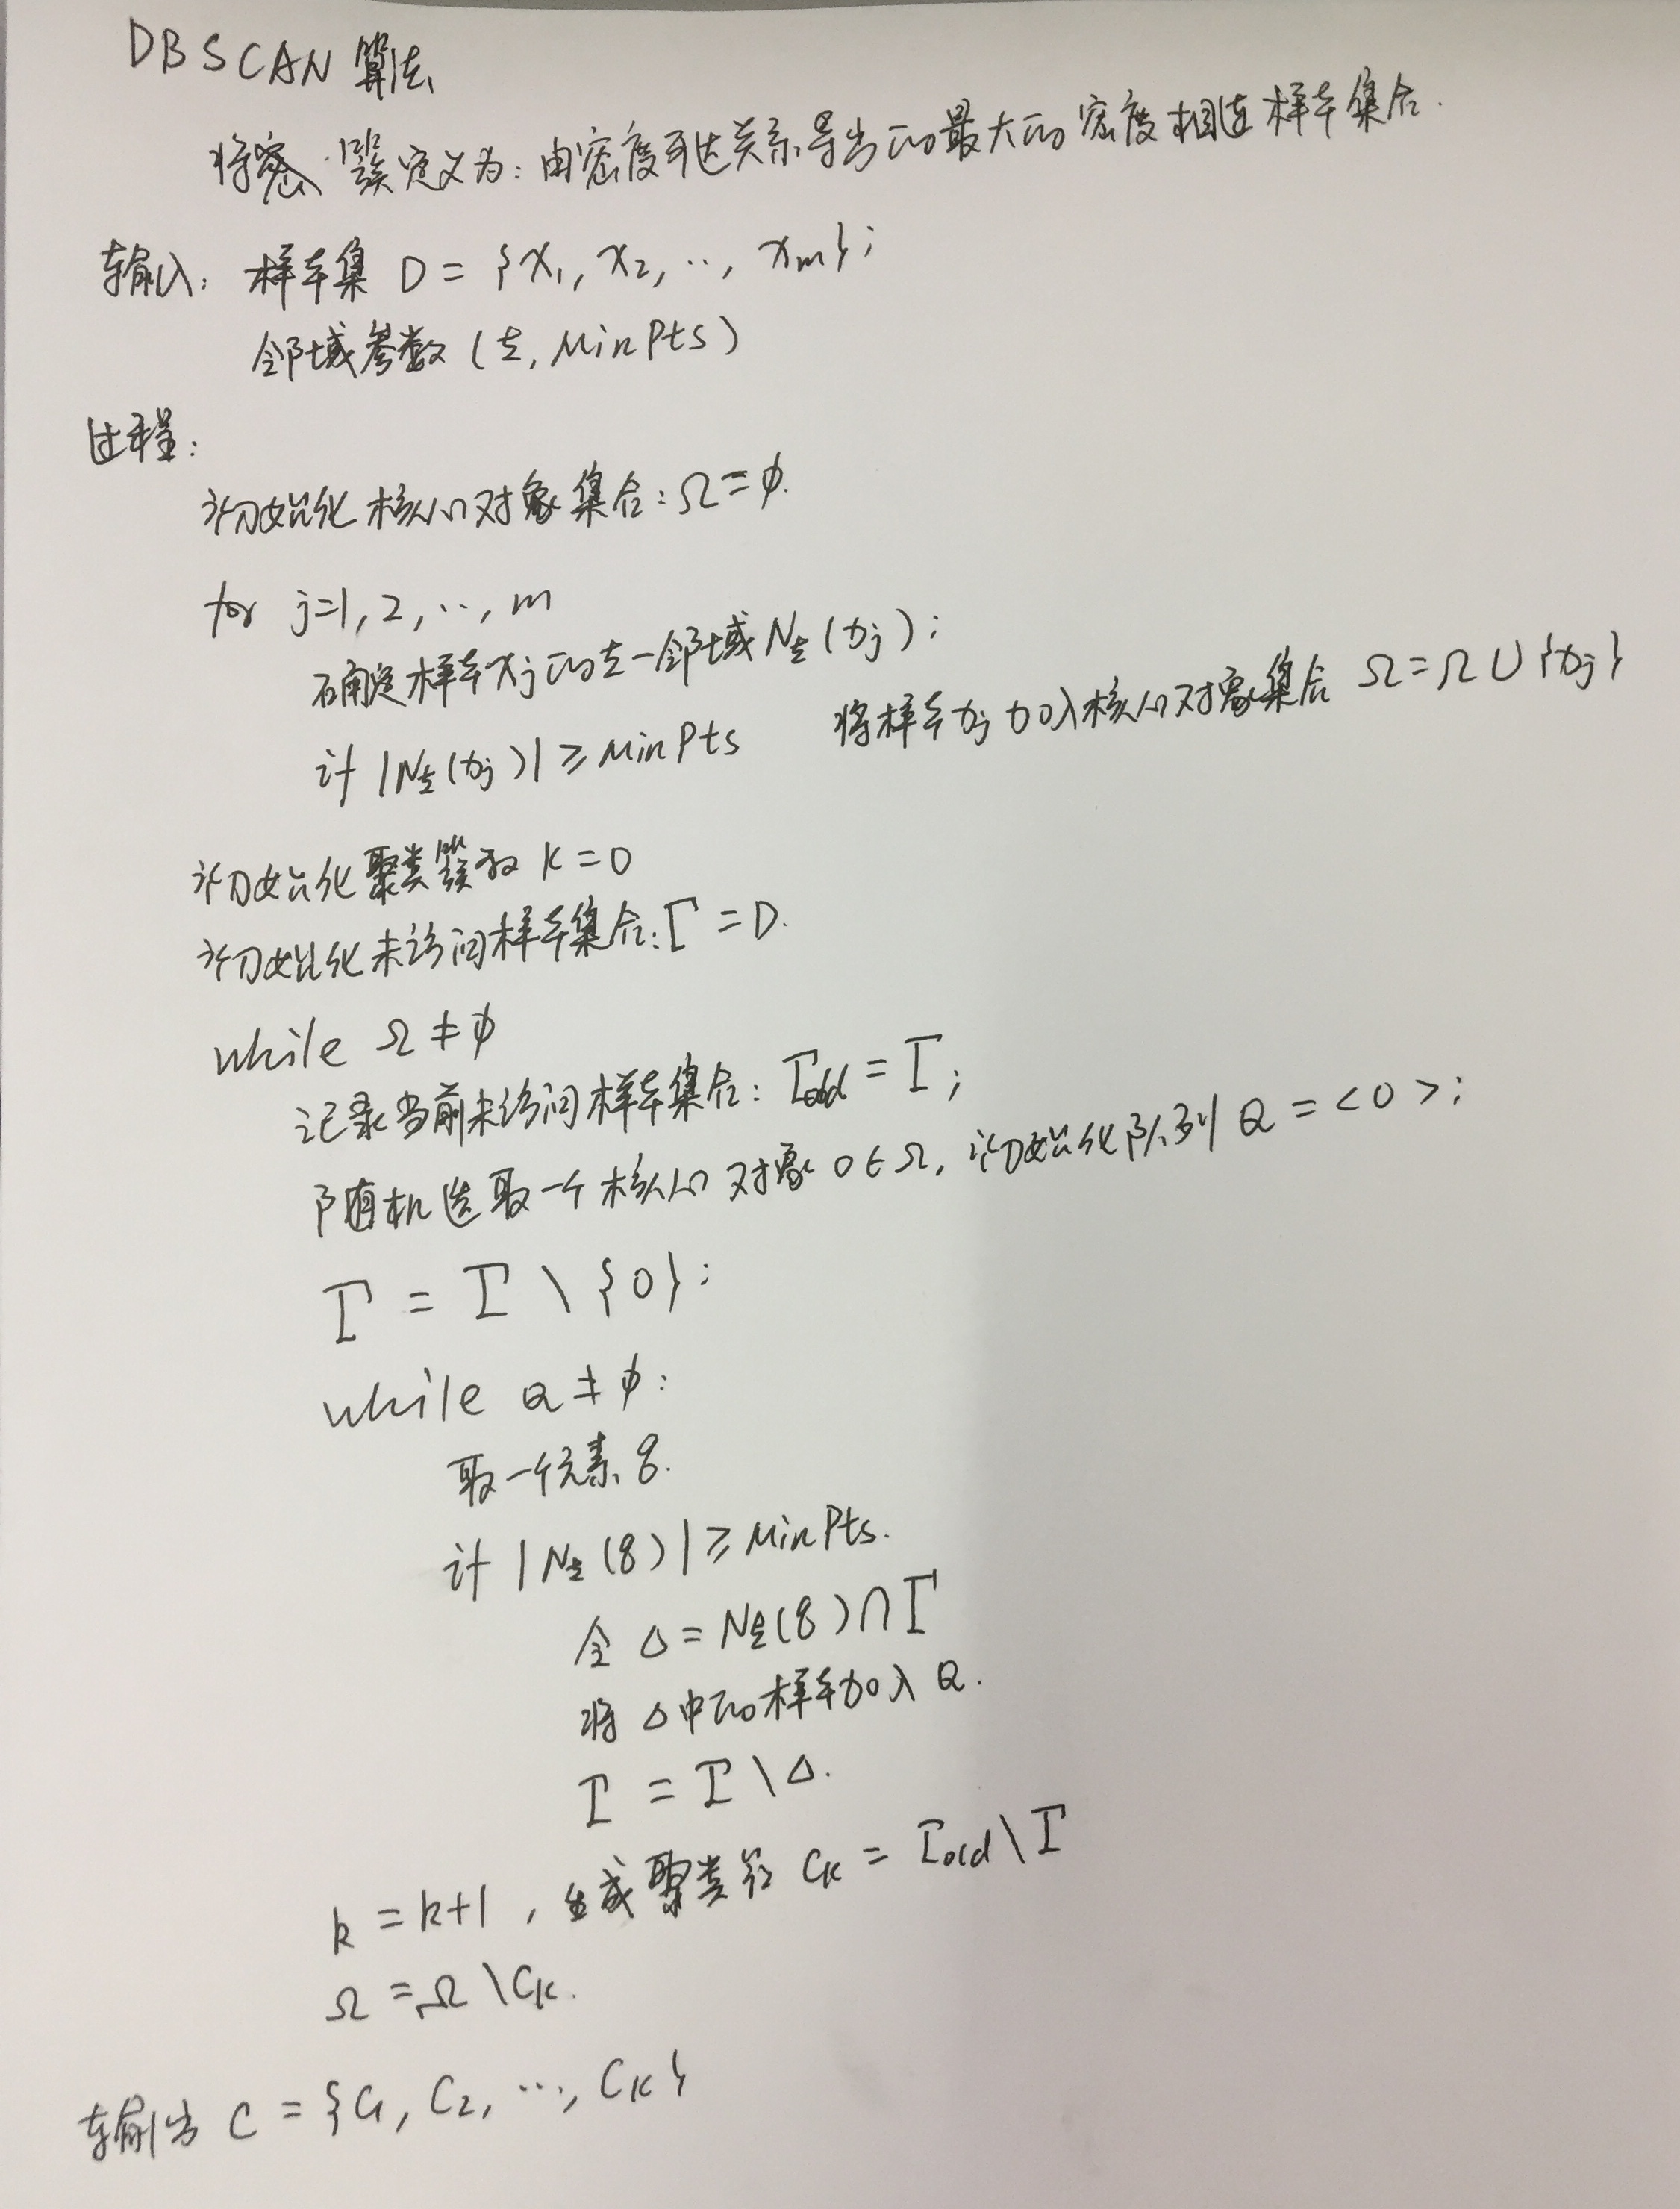 DBSCAN 算法
将密 簇定义为：由密度可达关系导出的最大的密度相连样本集合.
输入：样本集 D = {x1, x2, .., xm};
邻域参数 (ε, MinPts)
过程：
初始化核心对象集合：Ω=ϕ.
for j=1, 2, .., m
确定样本xj的ε-邻域Nε(xj);
计 |Nε(xj)| ≥ MinPts 将样本xj加入核心对象集合 Ω=Ω∪{xj}
初始化聚类簇数 k=0
初始化未访问样本集合：Γ=D.
while Ω≠ϕ
记录当前未访问样本集合：Γold = Γ;
随机选取一个核心对象 o∈Ω, 初始化队列 Q = <o>;
Γ = Γ \ {o};
while Q≠ϕ:
取一个元素 q.
计 |Nε(q)| ≥ MinPts.
令 Δ = Nε(q)∩Γ
将 Δ中的样本加入 Q.
Γ = Γ \ Δ.
k = k+1, 生成聚类簇 Ck = Γold \ Γ
Ω = Ω \ Ck.
输出 C = {C1, C2, ..., Ck}